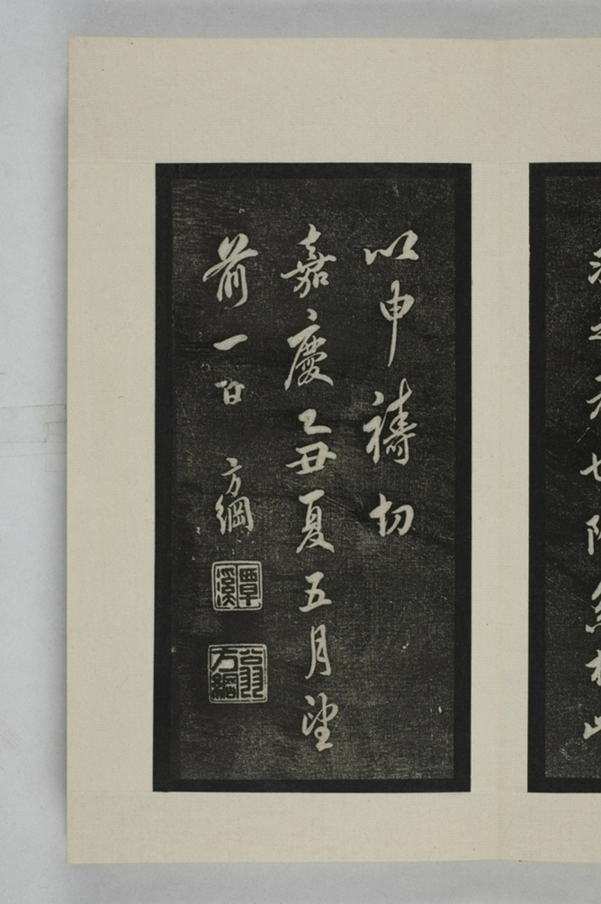 以申禱切
嘉慶乙丑夏五月望
前一日 方綱
覃溪
翁方綱